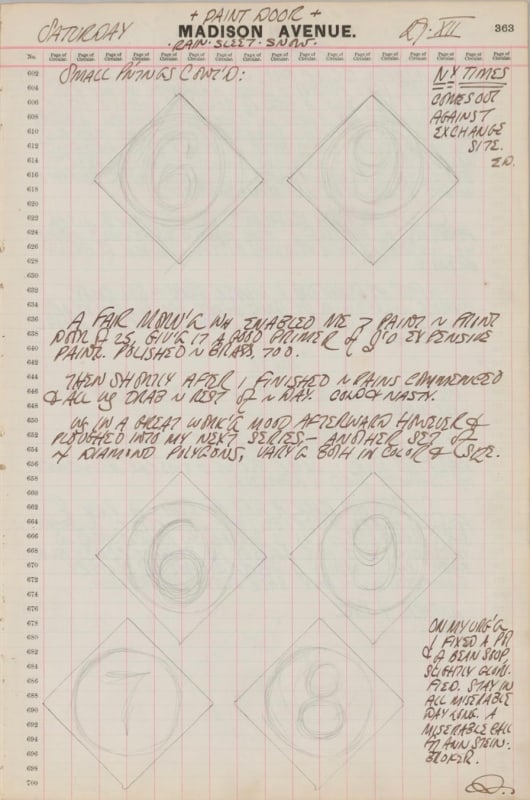 + PAINT DOOR +
SATURDAY
MADISON AVENUE.
363
· RAIN · SLEET · SNOW ·
No. Page of Circular. Page of Circular. Page of Circular. Page of Circular. Page of Circular. Page of Circular. Page of Circular. Page of Circular. Page of Circular. Page of Circular. Page of Circular. Page of Circular. Page of Circular. Page of Circular.
SMALL P'NTINGS CONT'D:
NY TIMES
COMES OUT
AGAINST
EXCHANGE
SITE.
ED.
602
604
606
608
610
612
614
616
618
620
622
624
626
628
630
632
634
636
638
640
642
644
646
648
650
652
654
656
658
660
662
664
666
668
670
672
674
676
678
680
682
684
686
688
690
692
694
696
698
700
6 9
A FAIR MORN'G WH ENABLED ME PAINT FRONT
DOOR 25, GIV'G IT A GOOD PRIMER & EXPENSIVE
PAINT. POLISHED BRASS, TOO.
THEN SHORTLY AFTER I FINISHED RAINS COMMENCED
& ALL DRAB REST OF DAY. COLD & NASTY.
IN A GREAT WORK'G MOOD AFTERWARD HOWEVER &
PLOUGHED INTO MY NEXT SERIES — ANOTHER SET OF
4 DIAMOND POLYGONS, VARY'G BOTH IN COLOR & SIZE.
6 9
7 8
ON MY URG'G
I FIXED A
& A BEAN SOUP,
SLIGHTLY GLORI-
FIED. STAY IN
ALL MISERABLE
DAY LONG. A
MISERABLE CALL
ANN STEIN-
BROKER.